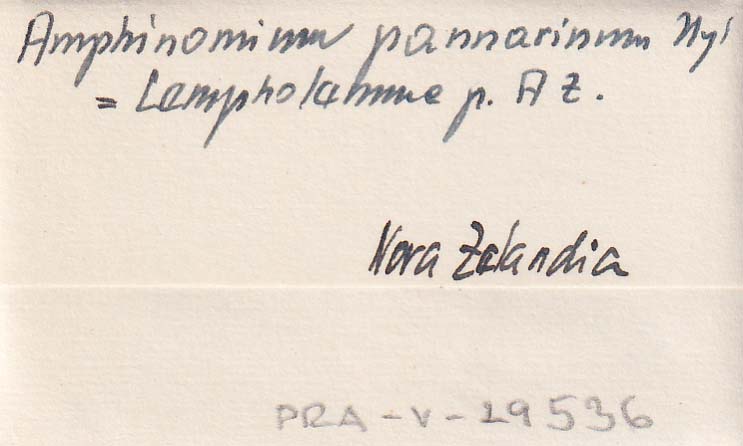 Amphinomium pannarinum Nyl
= Lempholemme p. A Z.
Nova Zelandia
PRA-V-29536